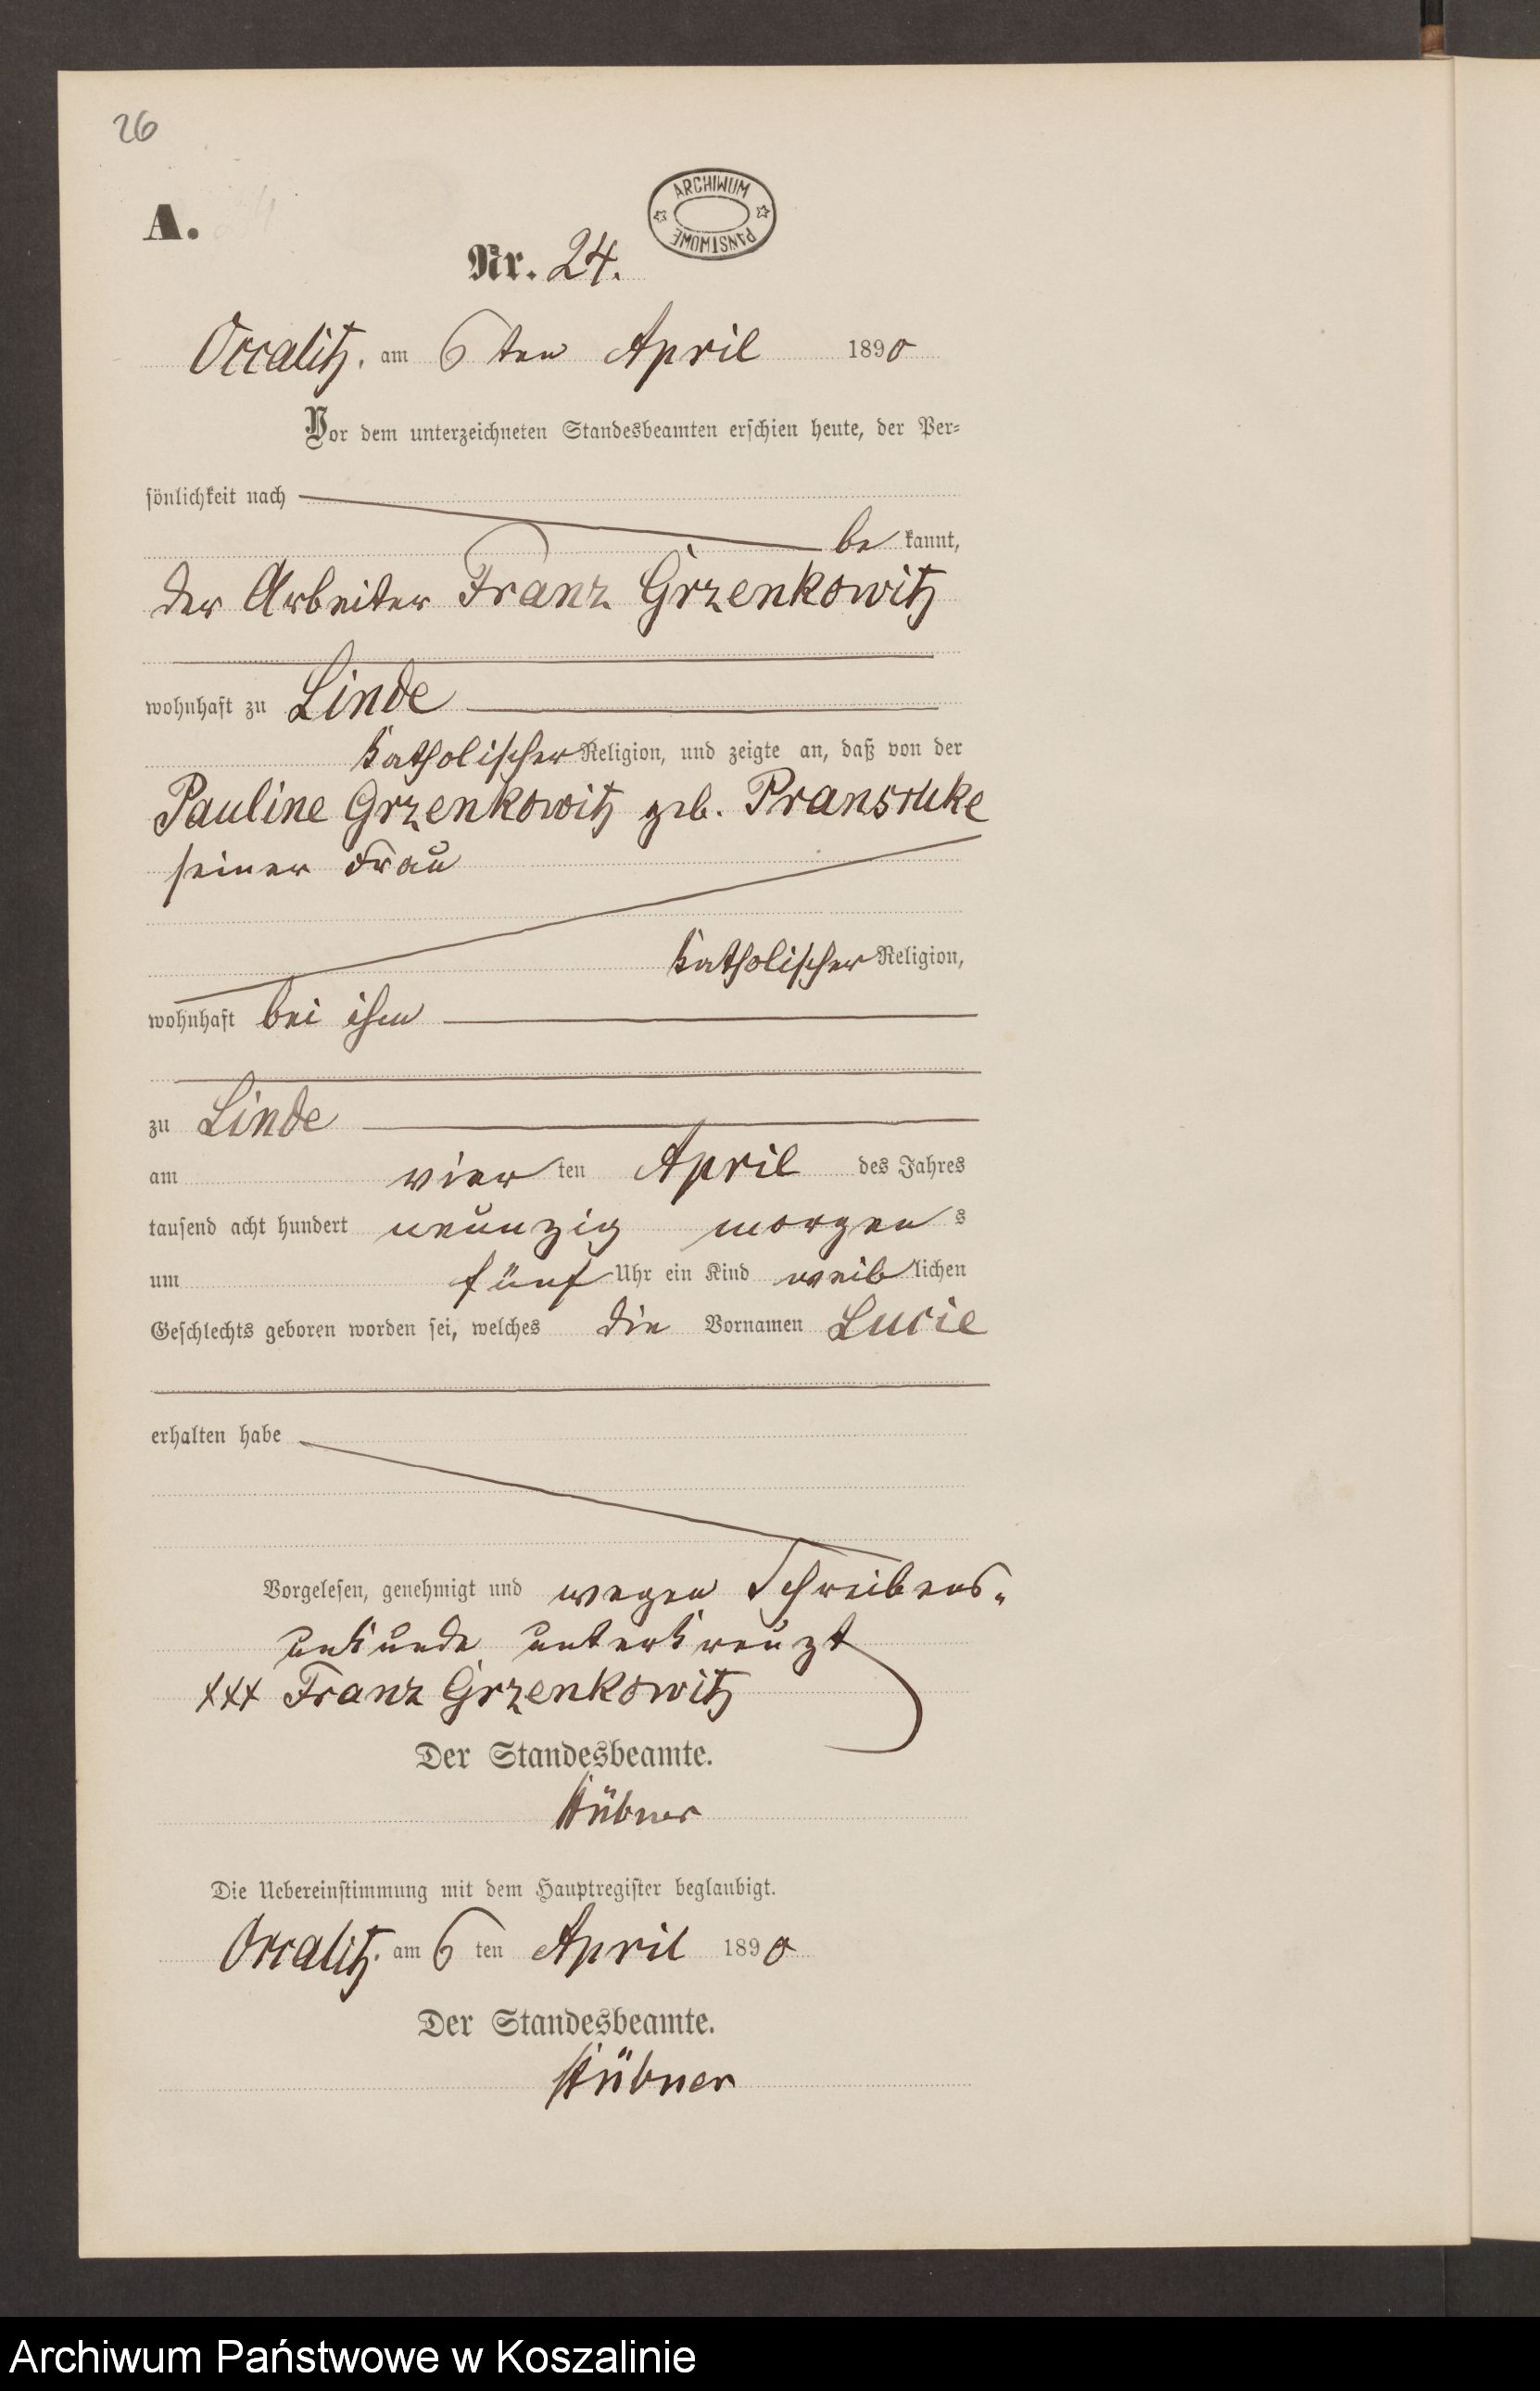 26
A.
ARCHIWUM PAŃSTWOWE
Nr. 24.
Occalitz, am 6 ten April 1890
Vor dem unterzeichneten Standesbeamten erschien heute, der Per-
sönlichkeit nach
be kannt,
der Arbeiter Franz Grzenkowitz
wohnhaft zu Linde
katholischer Religion, und zeigte an, daß von der
Pauline Grzenkowitz geb.
seiner Frau
katholischer Religion,
wohnhaft bei ihm
zu Linde
am vier ten April des Jahres
tausend acht hundert neunzig morgen s
um fünf Uhr ein Kind weib lichen
Geschlechts geboren worden sei, welches die Vornamen Lucie
erhalten habe
Vorgelesen, genehmigt und wegen Schreibens-
unkunde unterkreuzt
xxx Franz Grzenkowitz
Der Standesbeamte.
Hübner
Die Uebereinstimmung mit dem Hauptregister beglaubigt.
Occalitz, am 6 ten April 1890
Der Standesbeamte.
Hübner
Archiwum Państwowe w Koszalinie